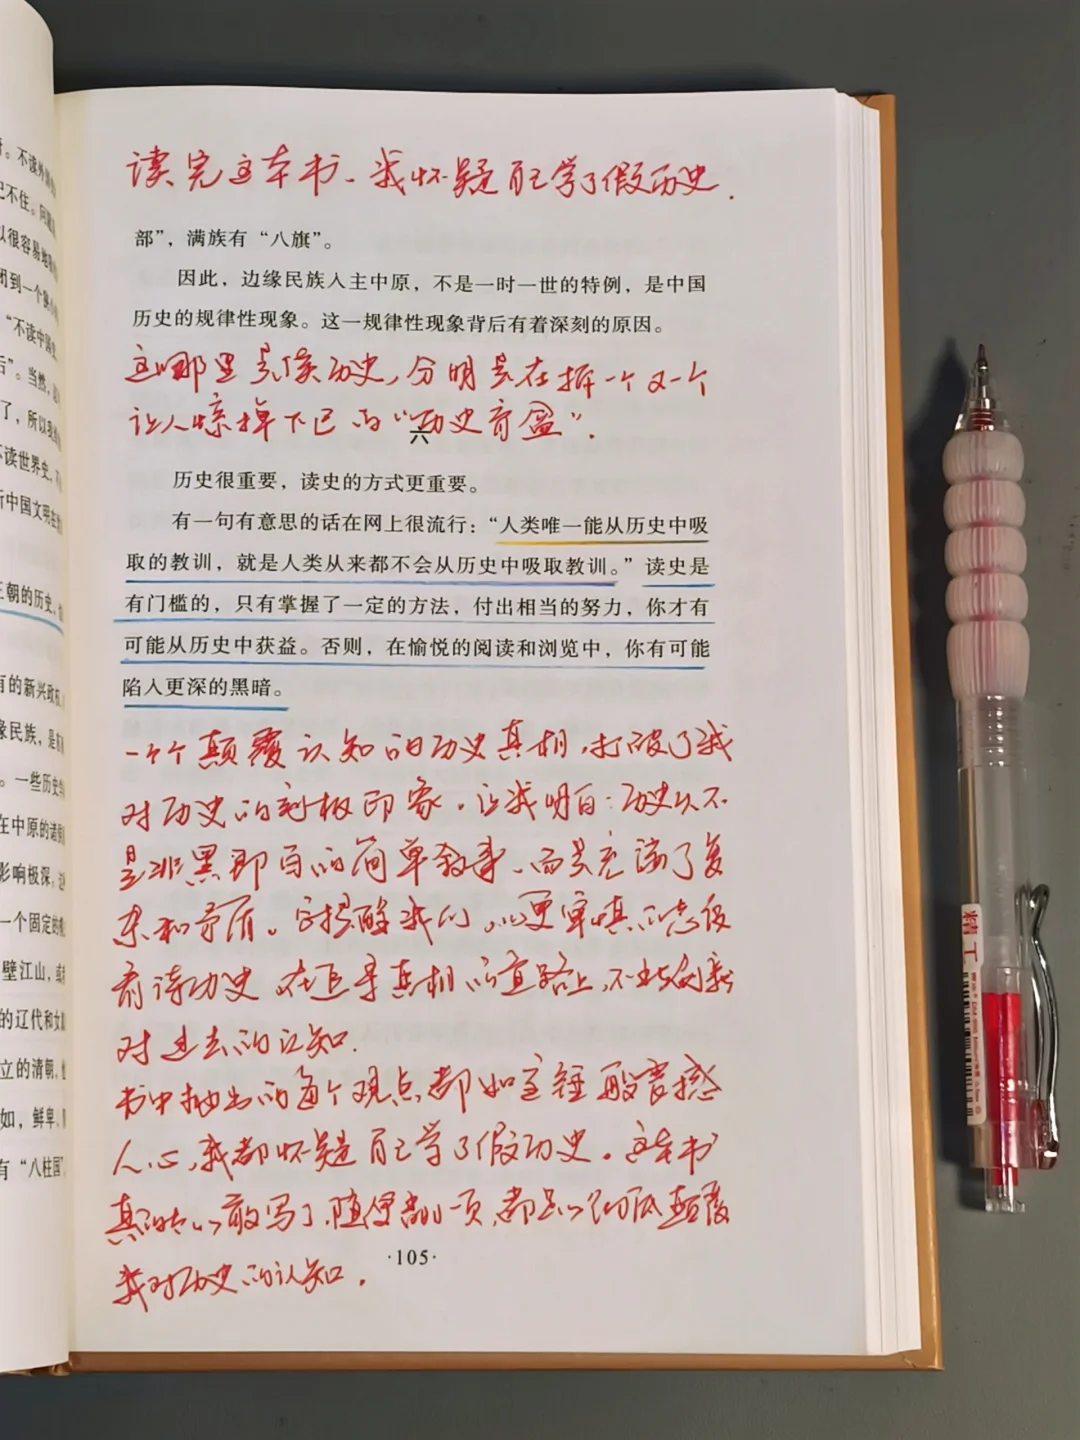 读完这本书、我怀疑自己学了假历史.
部”，满族有“八旗”。
因此，边缘民族入主中原，不是一时一世的特例，是中国
历史的规律性现象。这一规律性现象背后有着深刻的原因。
这哪里是读历史，分明是在拆一个又一个
让人惊掉下巴的“历史盲盒”.
六
历史很重要，读史的方式更重要。
有一句有意思的话在网上很流行：“人类唯一能从历史中吸
取的教训，就是人类从来都不会从历史中吸取教训。”读史是
有门槛的，只有掌握了一定的方法，付出相当的努力，你才有
可能从历史中获益。否则，在愉悦的阅读和浏览中，你有可能
陷入更深的黑暗。
一个个颠覆认知的历史真相,打破了我
对历史的刻板印象.让我明白:历史从不
是非黑即白的简单叙事、而是充满了复
杂和矛盾。它提醒我们,以更审慎的态度
看待历史 在追寻真相的道路上,不断刷新
对过去的认知.
书中抛出的每个观点都如重锤般震撼
人心,我都怀疑自己学了假历史。这本书
真的敢写了.随便翻一页,都是彻底颠覆
我对历史的认知.
·105·
不读外
记不住。
以很容易地
闭到一个
“不读中国史
后”。当然，
了，所以我
不读世界史，
中国文明在
王朝的历史，
有的新兴政权，
缘民族，是
。一些历史
在中原的诸
影响极深。
一个固定的
壁江山，或
的辽代和女
立的清朝，
如，鲜卑、
有“八柱国”
精工